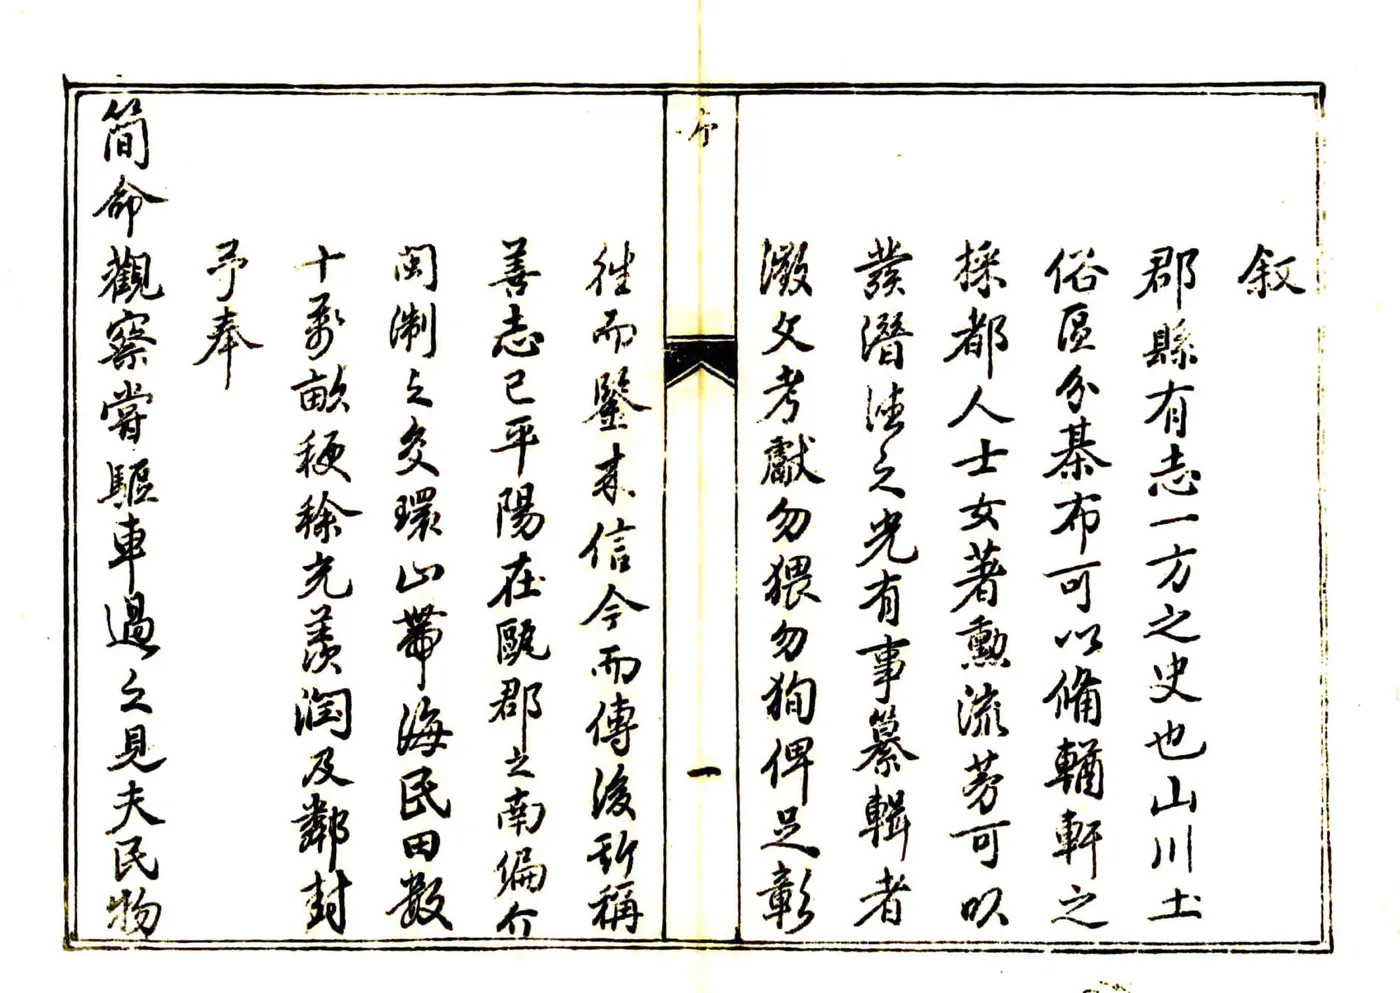 叙
郡縣有志一方之史也山川土
俗區分棊布可以備輶軒之
採都人士女著勳流芳可以
發潛德之光有事纂輯者
徵文考獻勿猥勿徇俾足彰
序
一
往而鑒来信今而傳後斯稱
善志已平陽在甌郡之南偏介
閩淛之交環山帶海民田數
十萬畝稉稌充羨潤及鄰封
予奉
簡命觀察嘗驅車過之見夫民物